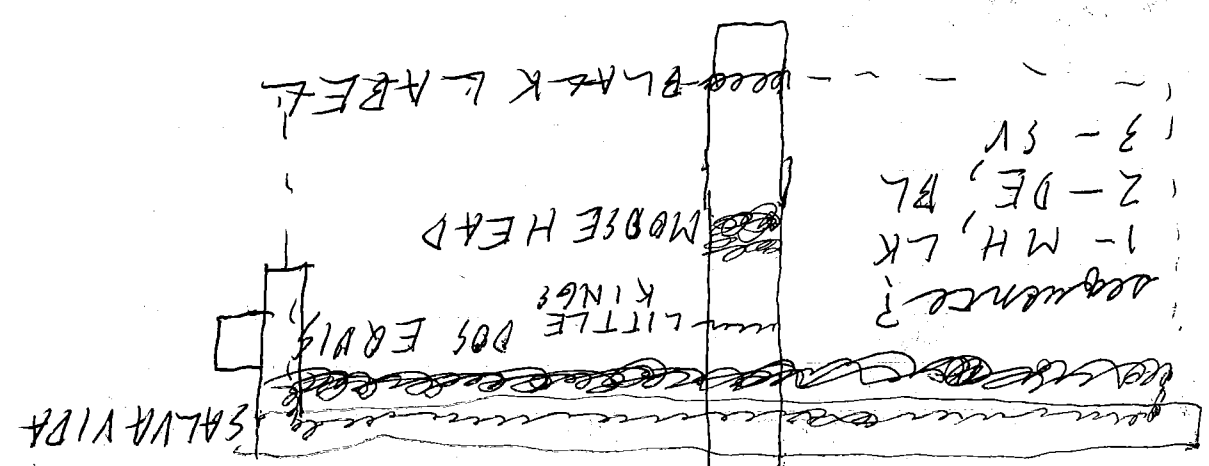 SALVA VIDA
DOS EQUIS
LITTLE
KINGS
MOOSE HEAD
BLACK LABEL
sequence?
1 - MH, LK
2 - DE, BL
3 - SV